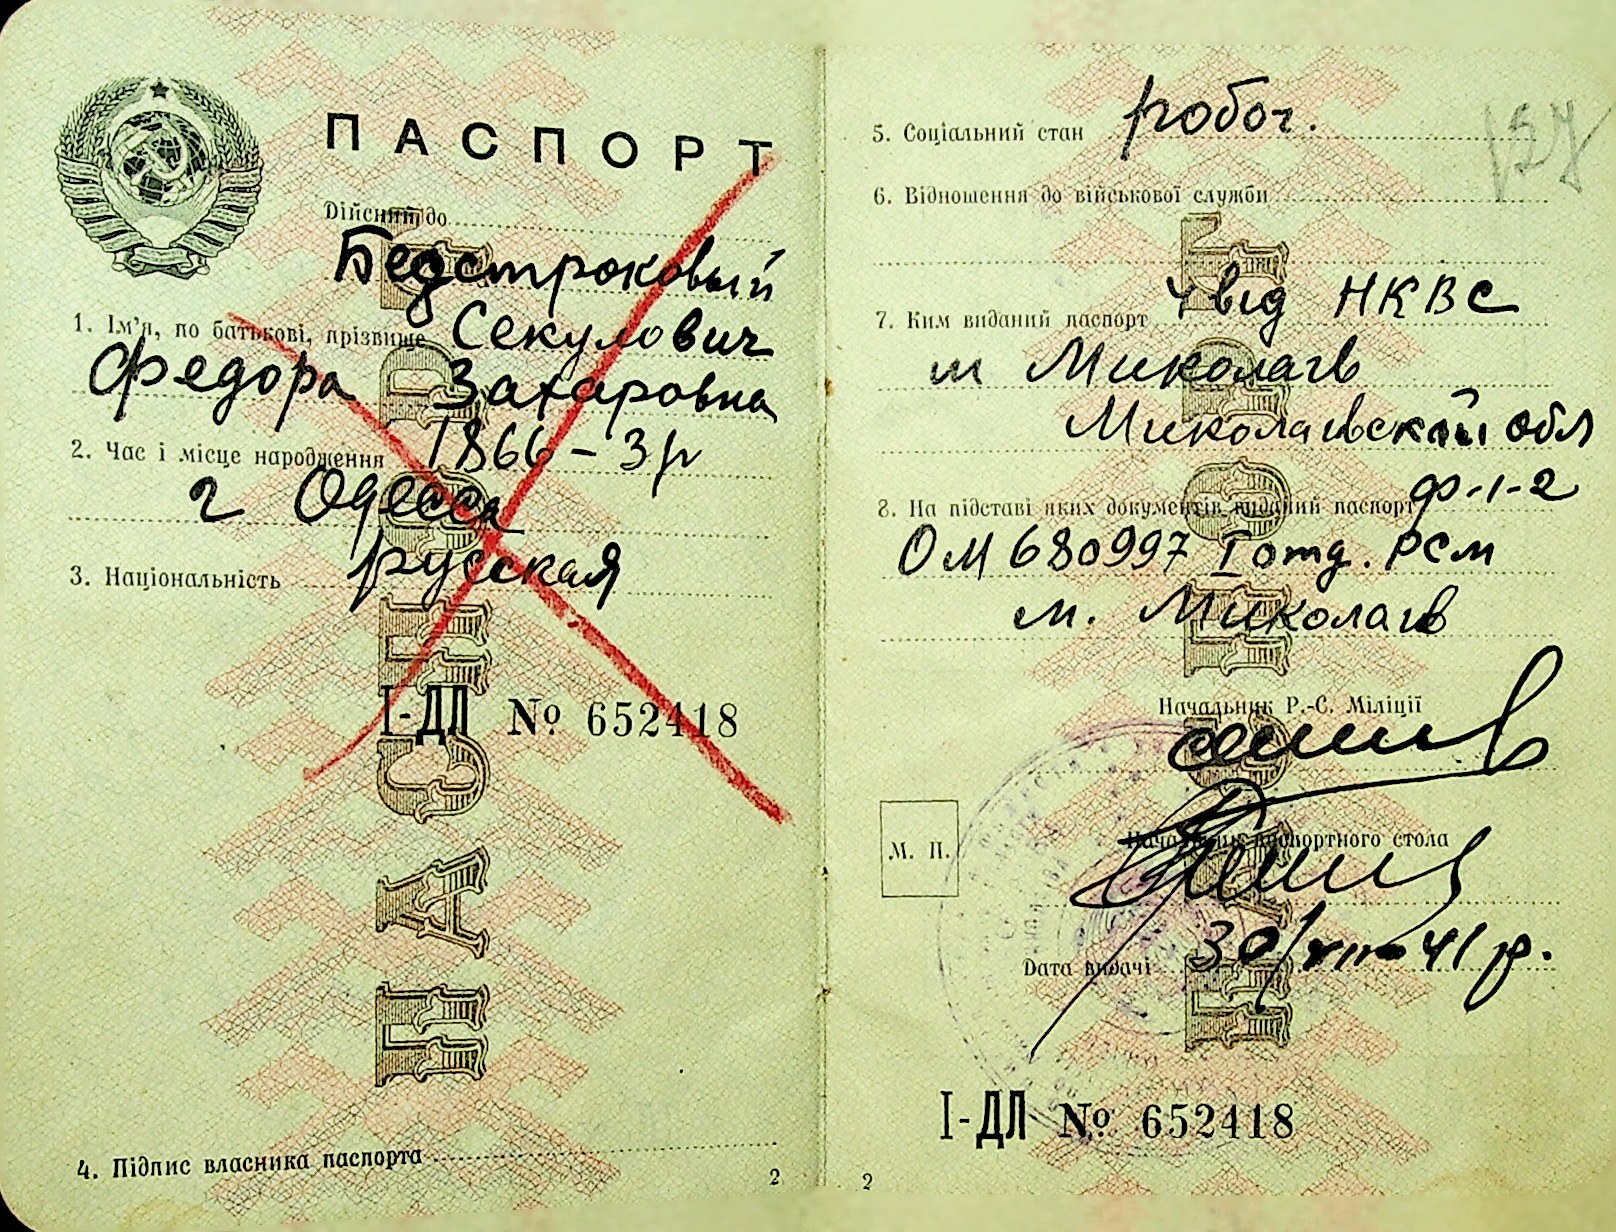 ПАСПОРТ
Дійсний до
Бедстроковый
1. Ім'я, по батькові, прізвище Секулович
Федора Захаровна
2. Час і місце народження 1866 - 3 р
г Одесса
3. Національність русская
І-ДЛ № 652418
4. Підпис власника паспорта
2
5. Соціальний стан робоч.
157
6. Відношення до військової служби
7. Ким виданий паспорт 4 від НКВС
м Миколаїв
Миколаївской обл
8. На підставі яких документів виданий паспорт ф-1-2
ОМ 680997 I отд. РСМ
м. Миколаїв
Начальник Р.-С. Міліції
Начальник паспортного стола
М. П.
Дата видачі 30/VIII-41 р.
І-ДЛ № 652418
2
ПАСПОРТ
ПАСПОРТ